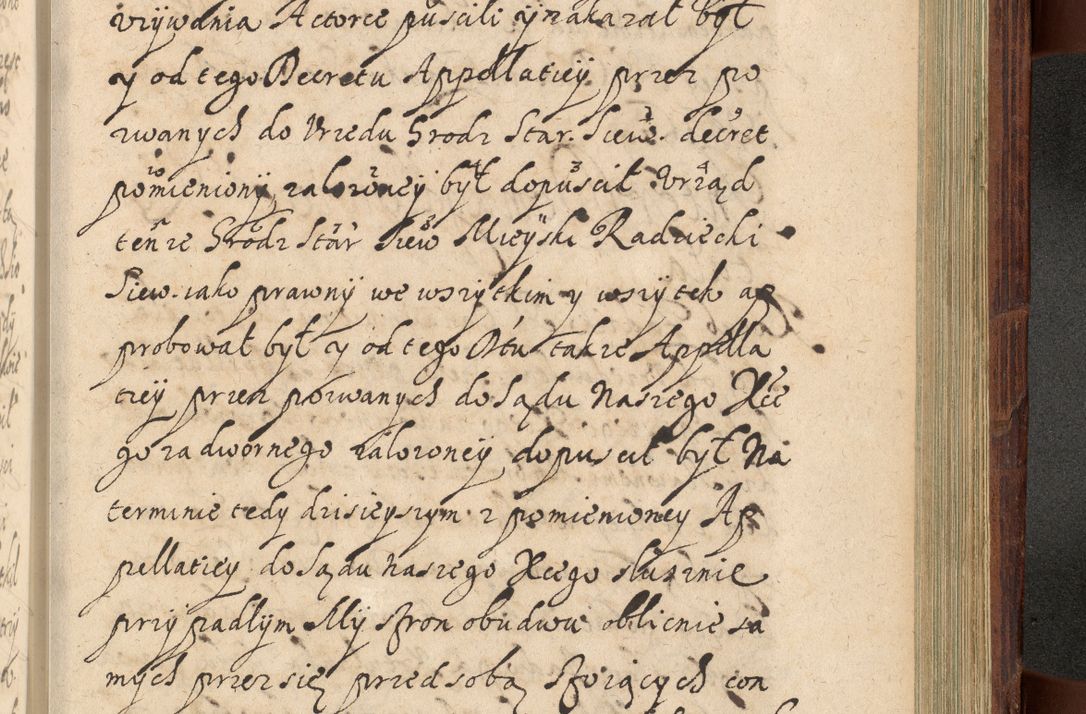 vzÿwania Actorce puscili ÿ nakazał był
y od tego Decretu Appellatieÿ przez po
zwanych do Vrzedu Grodz Star. Siew. decret
pomienionÿ załozoneÿ był dopuscił Vrząd
tenze Grodz Star Siew Mieÿski Radziecki
Siew. iako prawnÿ we wszÿtkim y wszÿtek ap
probował był y od tego Dtu takze Appella
tieÿ przez pozwanych do Sądu Naszego Xcę
go zadwornego załozoneÿ dopuscił był Na
terminie tedy dzisieyszym z pomienioney Ap
pellatieÿ do Sądu naszego Xcego słusznie
przÿpadłÿm Mÿ stron obudwu oblicnie sa
mÿch przez się przed sobą stoiącÿch con